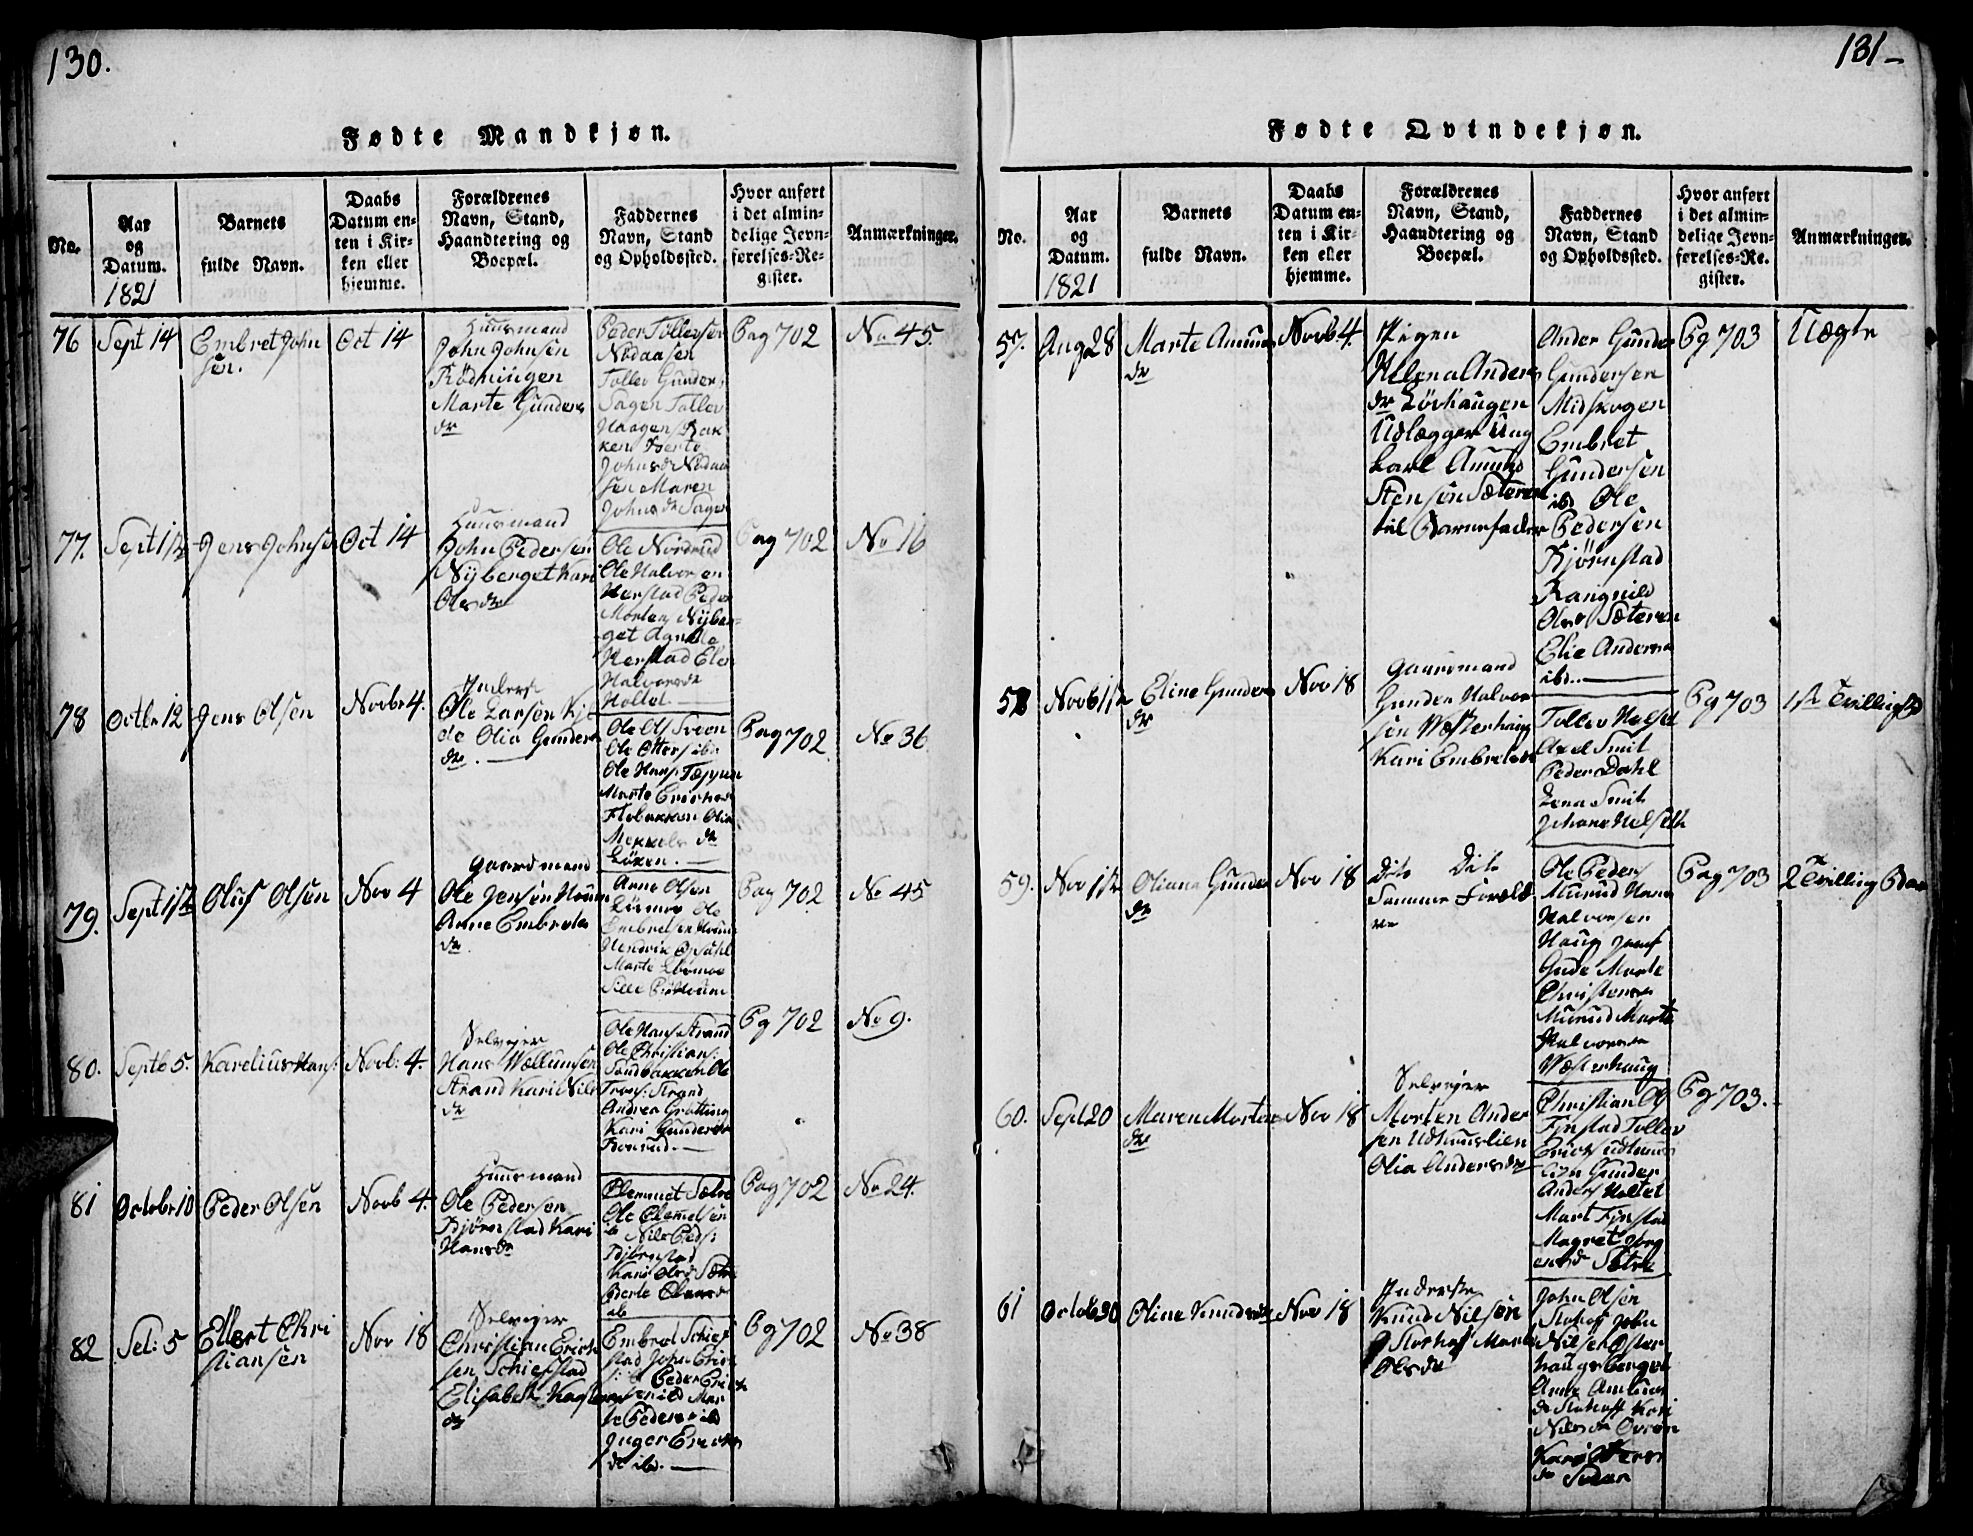 130.
Fødte Mandkjøn.
No.
Aar
og
Datum.
1821
Barnets
fulde Navn.
Daabs
Datum en-
ten i Kir-
ken eller
hjemme.
Forældrenes
Navn, Stand,
Haandtering og
Boepæl.
Faddernes
Navn, Stand
og Opholdssted.
Hvor anført
i det almin-
delige Jevn-
førelses-Re-
gister.
Anmærkninger.
76
Sept 14
Embret John
sen.
Oct 14
Huusmand
John Johnsen
Rödningen
Marte Gunders
dr
Peder Tollevsen
Nödaasen
Tollev Gunder
Sagen Tollev
Haagens
ken Berte
Johnsdr Nödaa
sen Maren
Johnsdr Sagen
Pag 702
No 45.
77.
Sept 1ste
Jens Johnsen
Oct 14
Huusmand
John Pedersen
Nyberget Kari
Olesdr
Ole Nordrud
Ole Halvorsen
Herstad Peder
Morten Nyber-
get
Herstad Elen
Halvorsdr
Holtet
Pag 702
No 16
78
Octbr 12
Jens Olsen
Novbr 4.
Inderst
Ole Larsen Kje
Olia Gunders
dr.
Ole Ols Sveen
Ole Otters ibd
Ole Hans
Marte Erichsdr
Olia
Mekkels dr
Löken.
Pag 702
No 36
79.
Sept 1ste
Oluf Olsen
Nov 4
Gaardmand
Ole Jensen
Anne Embrets
dr.
Arne Olsen
Ole
Embretsen
Hendrik Opsahl
Marte
Pag 702
No 45
80.
Septb 5.
Karelius Hans:
Novb: 4.
Selvejer
Hans
Strand Kari Nils
dr
Ole Hans Strand
Ole Christians:
Sandbakken Ole
Strand
Andrea Grötting
Kari Gundersdr
Pg 702
No 9.
81
Octobr 10
Peder Olsen
Novb 4.
Huusmand
Ole Pedersen
Bjørnstad Kari
Hansdr
Clemmet Sætre
Ole Clemetsen
ib Nils Peds:
Bjørnstad
Kari Olsd Sætre
Berte
ib
Pag 702
No 24.
82
Set: 5
Ellert Chri
stiansen
Nov 18
Selvejer
Christian Erich
sen Schiefstad
Elisabeth
dr
Embret Schief
stad John Erich
Peder Erich
sen ibd Mar
te Peders ib
Inger Erichs
dr ibd.
Pg 702
No 38
131
Fødte Qvindekjøn.
No.
Aar
og
Datum.
1821
Barnets
fulde Navn.
Daabs
Datum en-
ten i Kir-
ken eller
hjemme.
Forældrenes
Navn, Stand,
Haandtering og
Boepæl.
Faddernes
Navn, Stand
og Opholdssted.
Hvor anført
i det almin-
delige Jevn-
førelses-Re-
gister.
Anmærkninger.
57.
Aug 28
Marte Amunds
dr
Novb 4.
Pigen
Helena Anders
dr Lövhaugen
Udlægger Ung
karl Amund
Stensön Sæteren
til Barnefader
Ander Gunder
Gundersen
Midskogen
Embret
Gundersen
ib Ole
Pedersen
Kjørnstad
Rangnild
Olsd Sæteren
Elie Andersd
ibd.
Pg 703
Uægte
58
Novb 1ste
Eline Gunders
dr
Nov 18
Gaardmand
Gunder Halvor
sen Westerhaug
Kari Embretsdr
Tollev Helset
Axel Smit
Peder Dahl
Lena Smit
Johane Helseth
Pg 703
1ste Tvilling
59.
Nov 1ste
Oliana Gunders
dr
Nov 18
Dito Dito
Samme Foræld
re
Ole Peders
Murud Hans
Halvorsen
Haug Jens
Gude Marte
Christensdr
Murud Marte
Halvorsdr
Westerhaug
Pag 703
2 Tvilling
60.
Sept 20
Maren Mortens
dr
Nov 18
Selvejer
Morten Ander
sen Udhuuslien
Olia Andersdr
Christian
Fjnstad Tollev
Erichs udhuus
lien Gunder
Anders Holtet
Mart Fjnstad
Magret Jörg
ensd Sætre
Pg 703.
61
Octob 30
Oline Knudsdr
Nov 18
Inderste
Knud Nilsön
Storhof Marte
Olesdr
John Olsen
Storhof John
Nilsen Öster
haugsberget
Anne Amunds
dr Storhof Kari
Nilsdr
Kari
dr